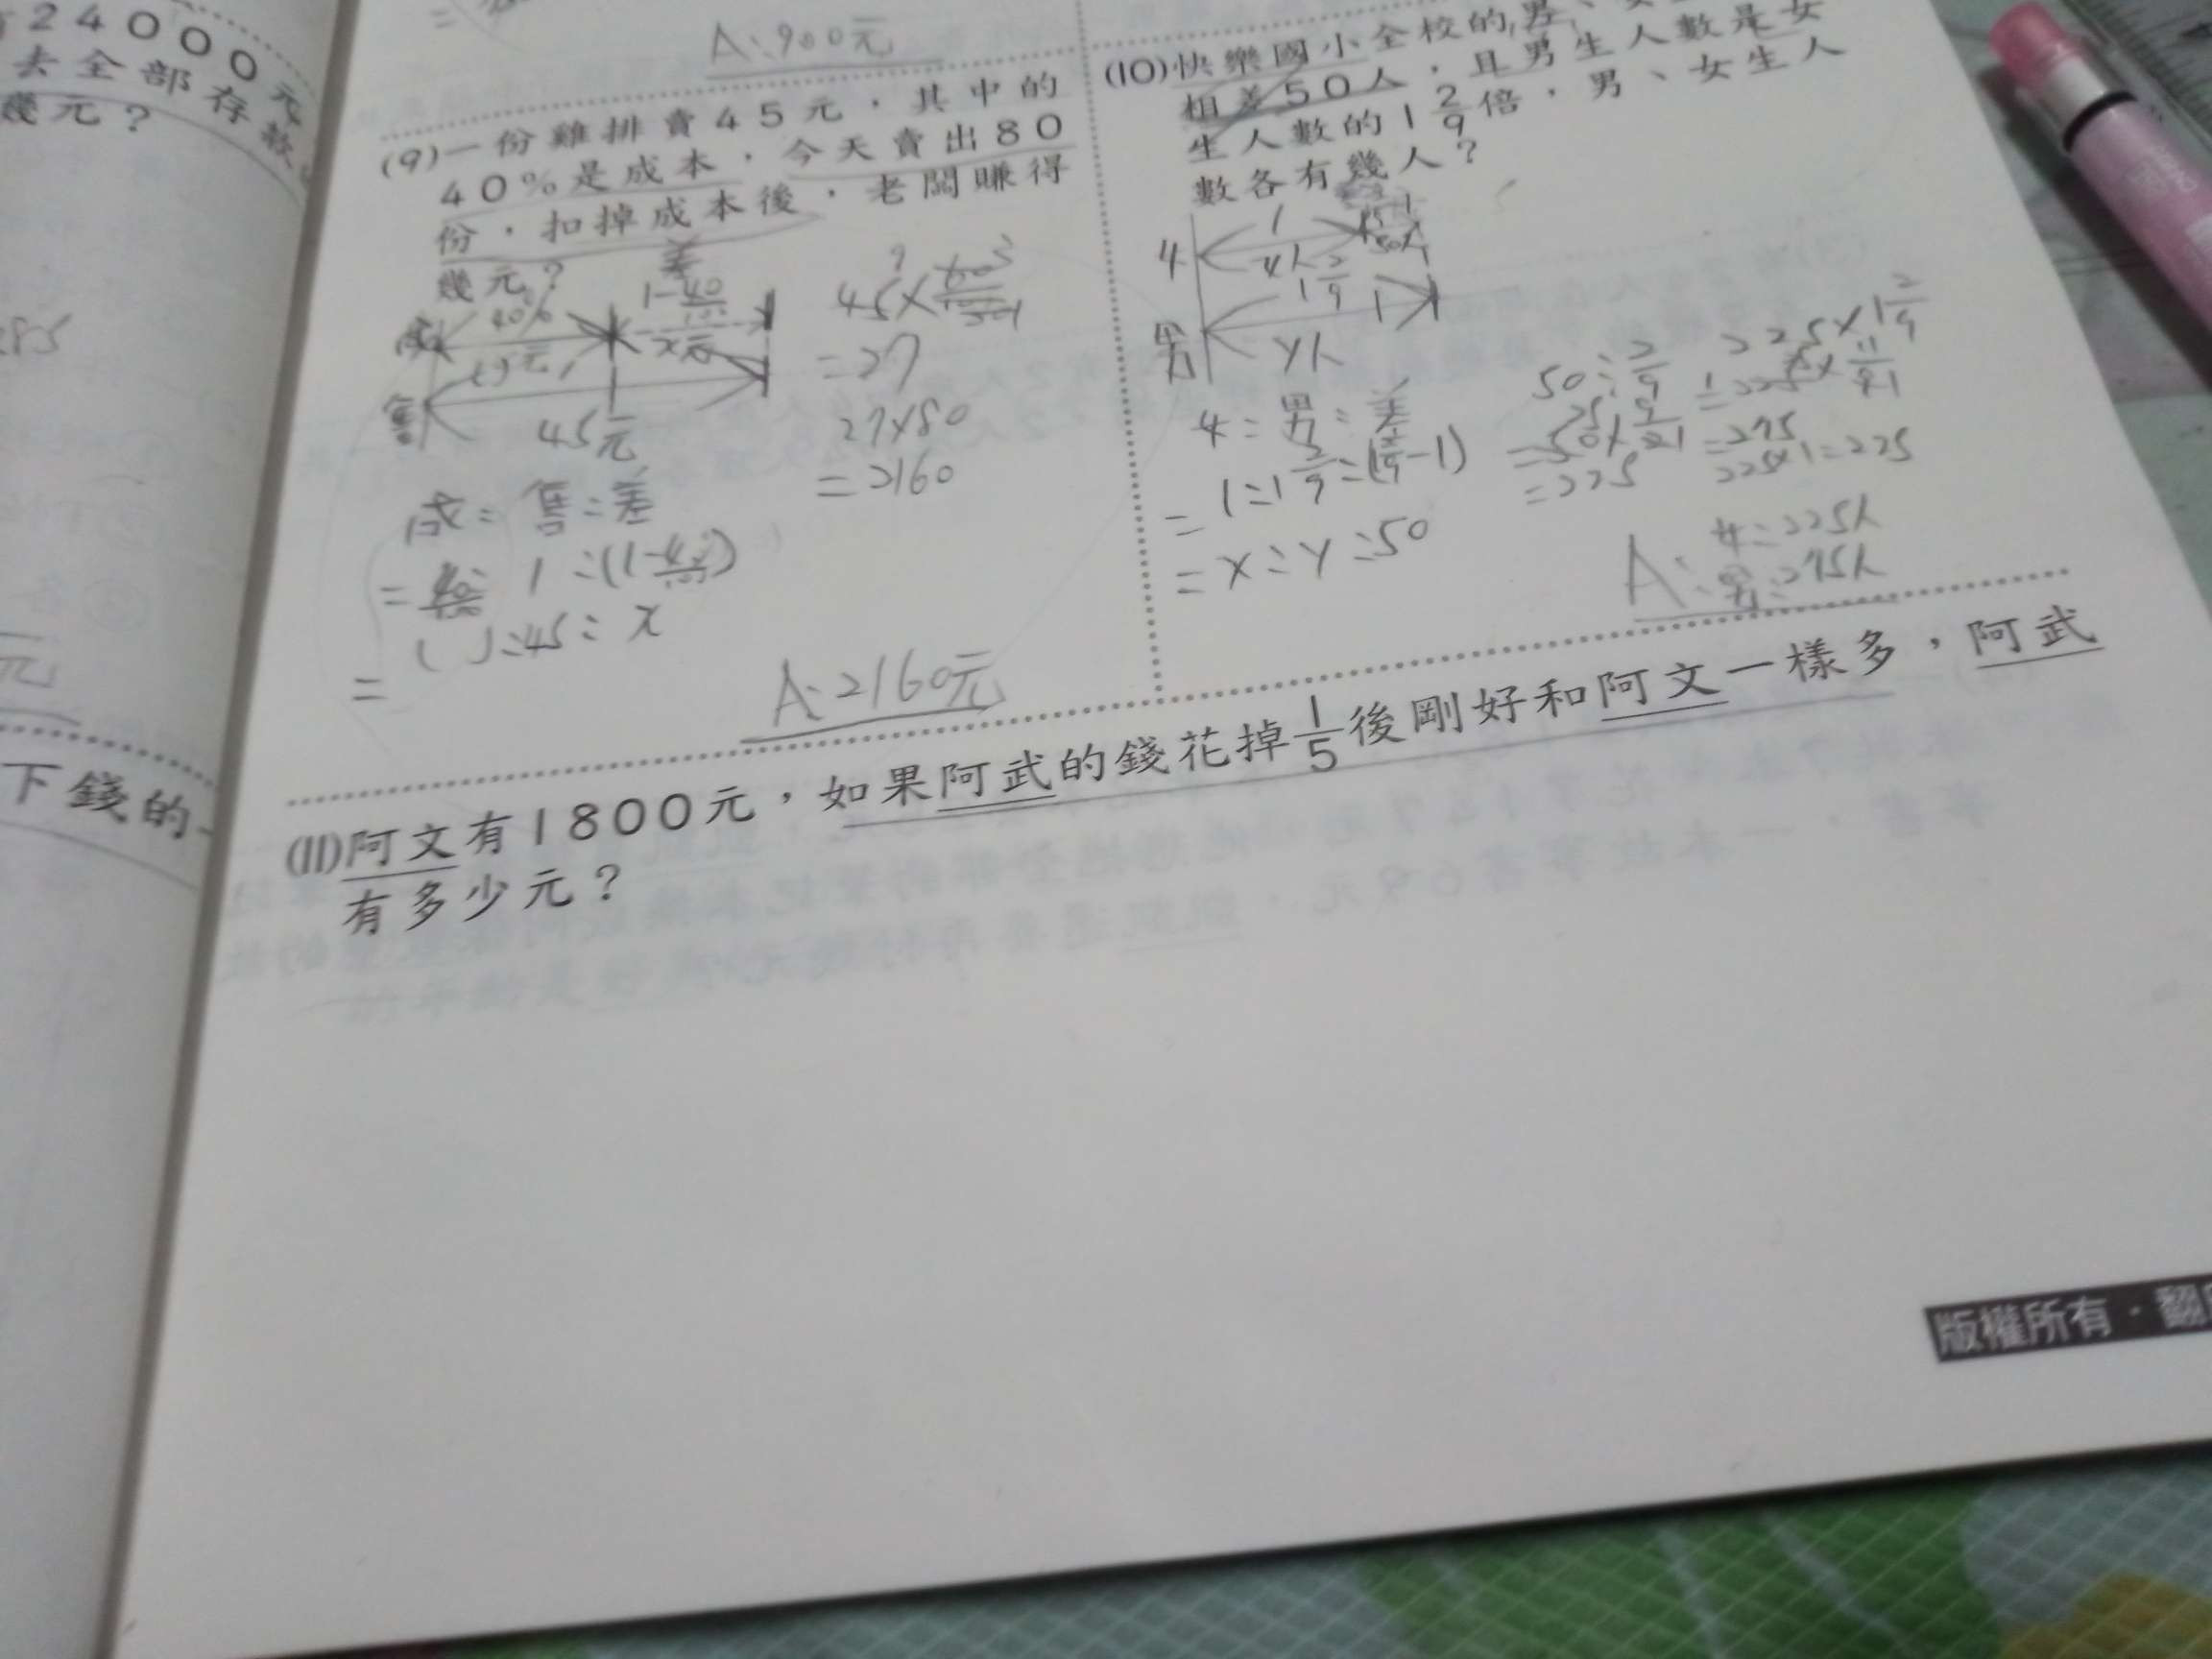 24000元
去全部存款
幾元？
285
元
下錢的
A:900元
(9)一份雞排賣45元，其中的
40%是成本，今天賣出80
份，扣掉成本後，老闆賺得
幾元？
差
40%
1-40/100
x元
售
45元
成:售:差
=40/100:1:(1-40/100)
=( ):45:x
=27
27×80
=2160
A:2160元
(10)快樂國小全校的男、
相差50人，且男生人數是女
生人數的1 2/9倍，男、女生人
數各有幾人？
女
1
x人
50人
1 2/9
男
y人
女:男:差
=1:1 2/9:(1 2/9-1)
=x:y:50
50÷2/9
=50×9/2
=225
225×1 2/9
=225×11/9
=275
225×1=225
A:女:225人
男:275人
(11)阿文有1800元，如果阿武的錢花掉1/5後剛好和阿文一樣多，阿武
有多少元？
版權所有·翻